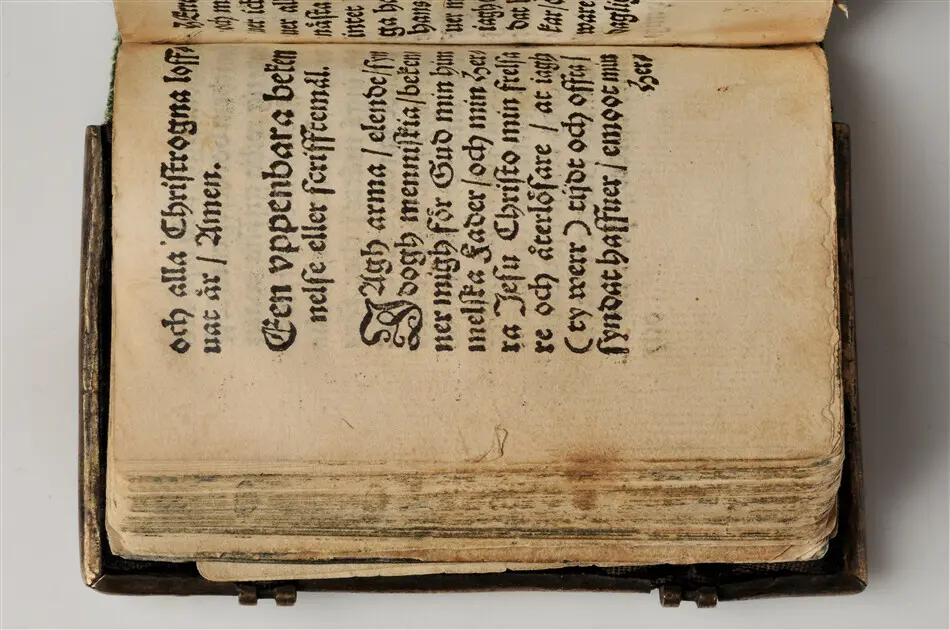 och alla Christrogna loff⸗
uat är / Amen.
Een vppenbara beken
nelse eller scrifftemål.
JAgh arma / elende / syn
dogh menniskia / beken
ner migh för Gud min him
melska Fader / och min Her⸗
ra Jesu Christo min frelsa
re och återlösare / at iagh
(ty werr) tijdt och offta
syndat haffuer / emoot min
Her⸗
och m
uer all
nästa
intet
ga
hans
uer
iagh
dat
ware
daglig